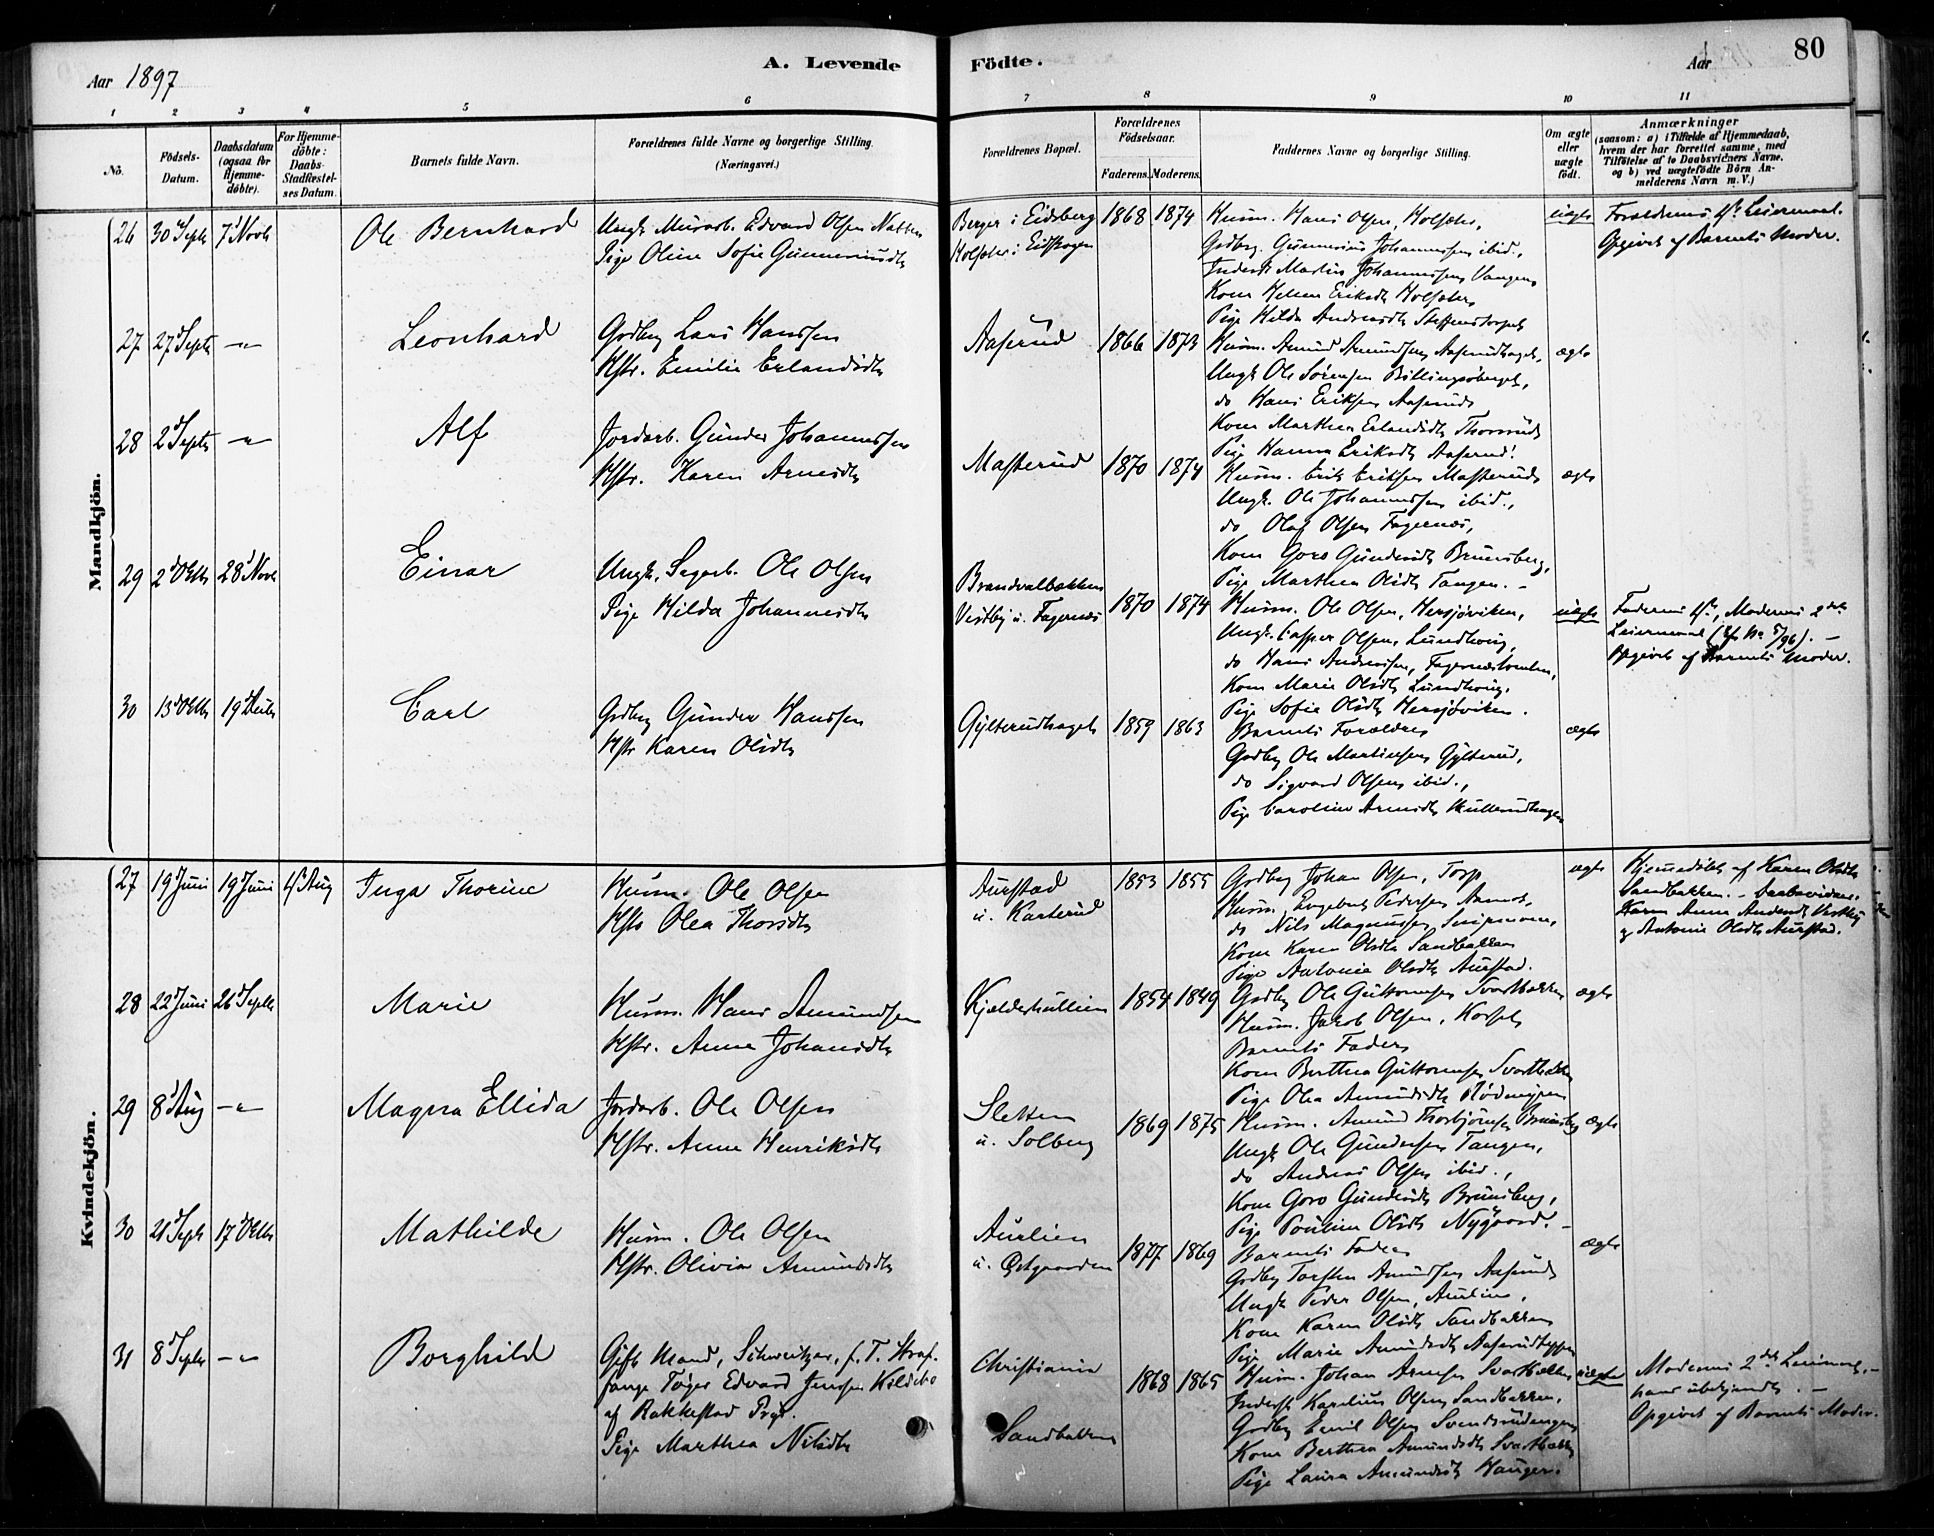 Aar 1897
A. Levende Födte.
Aar
80
1 2 3 4 5 6 7 8 9 10 11
No.
Födsels-Datum.
Daabsdatum (ogsaa for Hjemme-döbte).
For Hjemme-döbte: Daabs-Stadfæstel-ses Datum.
Barnets fulde Navn.
Forældrenes fulde Navne og borgerlige Stilling. (Næringsvei.)
Forældrenes Bopæl.
Forældrenes Födselsaar.
Faderens. Moderens.
Faddernes Navne og borgerlige Stilling.
Om ægte eller uægte födt.
Anmærkninger
(saasom: a) i Tilfælde af Hjemmedaab, hvem der har forrettet samme, med Tilföielse af to Daabsvidners Navne. og b) ved uægtefödte Börn Anmelderens Navn m. V.)
Mandkjön.
26 30 Septr 7 Novb Ole Bernhard
Ungk. Murarb. Edvard Olsen
Pige Oline Sofie Gunneriusdtr
Berger i Eidsberg
Holseter i Eidskogen
1868 1874
Husm. Hans Olsen, Holseter,
Gdbrg. Gunnerius Johannessen ibid.,
Inderst Martin Johannessen Vangen,
Kone Helene Eriksdtr Holseter,
Pige Hilda Andreasdtr
uægte
Forældrenes 1ste Leiermaal.
Opgivet af Barnets Moder.
27 27 Septr -"- Leonhard
Gdbrg Lars Hanssen
Hstr. Emilie Erlandsdtr
Aaserud
1866 1873
Husm. Amund Amundsen Aaserudhaget,
Ungk Ole Sörensen Billingsberget,
do Hans Eriksen Aaserud
Kone Marthea Erlandsdtr Thorsrud
Pige Hanna Eriksdtr Aaserud.
ægte
28 2 Septr -"- Alf
Jordarb. Gunder Johannessen
Hstr. Karen Arnesdtr
Masterud
1870 1874
Husm. Erik Eriksen Masterud
Ungk. Ole Johannessen ibid.,
do Olaf Olsen Fagernæs,
Kone Goro Gundersdtr Brunsberg,
Pige Marthea Olsdtr Tangen. -
ægte
29 2 Oktb 28 Novb Einar
Ungk. Sagarb. Ole Olsen
Pige Hilda Johannesdtr
Brandvalbakken
Vestby u. Fagernæs
1870 1874
Husm. Ole Olsen, Hersjöviken,
Ungk. Casper Olsen, Lundhoug,
do Hans Andersen, Fagernæstomten,
Kone Marie Olsdtr Lundhoug,
Pige Sofie Olsdtr Hersjöviken.
uægte
Faderens 1ste, Moderens 2det
Leiermaal (cfr No 5/96). -
Opgivet af Barnets Moder.
30 13 Oktb 19 Decbr Carl
Gdbrg Gunder Hanssen
Hstr Karen Olsdtr
Gylterudhaget
1859 1863
Barnets Forældre
Gdbrg Ole Martinsen Gylterud,
do Sigvard Olsen ibid.,
Pige Caroline Arnesdtr
ægte
Kvindekjön.
27 19 Juni 19 Juni 15 Aug Inga Thorine
Husm. Ole Olsen
Hstr Olea Thorsdtr
Aurstad
u. Kasterud
1853 1855
Gdbrg Johan Olsen, Torp
Husm. Engebret Pedersen Aamot,
do Nils Magnussen
Kone Karen Olsdtr Sandbakken
Pige Antonie Olsdtr Aurstad.
ægte
Hjemmedöbt af Karen Olsdtr
Sandbakken. - Daabsvidner:
Karen Anne Andersdtr Vestby
og Antonie Olsdtr Aurstad.
28 22 Juni 26 Septb Marie
Husm. Hans Amundsen
Hstr. Anne Johansdtr
Kjælderhullien
1854 1849
Gdbrg Ole Guttormsen Svartbakken
Husm. Jakob Olsen,
Barnets Fader,
Kone Berthea Guttormsen Svartbakken
Pige Olea Amundsdtr Rödmyren
ægte
29 8 Aug -"- Magna Ellida
Jordarb. Ole Olsen
Hstr. Anne Henriksdtr
Sletten
u. Solberg
1869 1875
Husm. Amund Thorbjörnsen Brunsberg
Ungk Ole Gundersen Tangen,
do Andreas Olsen ibid.,
Kone Goro Gundersdtr Brunsberg,
Pige Pouline Olsdtr Nygaard. -
ægte
30 21 Septr 17 Oktb Mathilde
Husm. Ole Olsen
Hstr. Olivia Amundsdtr
Aurlien
u. Östgaarden
1877 1869
Barnets Fader
Gdbrg Torsten Amundsen Aaserud
Ungk Peder Olsen, Aurlien,
Kone Karen Olsdtr Sandbakken
Pige Marie Amundsdtr
ægte
31 8 Septr -"- Borghild
Gift Mand, Schweitzer, f. T. Straf-
fange Töger Edvard Jensen Kildebo
af Rakkestad Prgj.
Pige Marthea Nilsdtr
Christiania
Sandbakken
1868 1865
Husm. Johan Arnesen Svartbakken
Inderst Karelius Olsen Sandbakken,
Gdbrg Emil Olsen
Kone Berthea Amundsdtr Svartbakken
Pige Laura Amundsdtr Hauger.
uægte
Moderens 2det Leiermaal, -
hans ubekjendt. -
Opgivet af Barnets Moder.